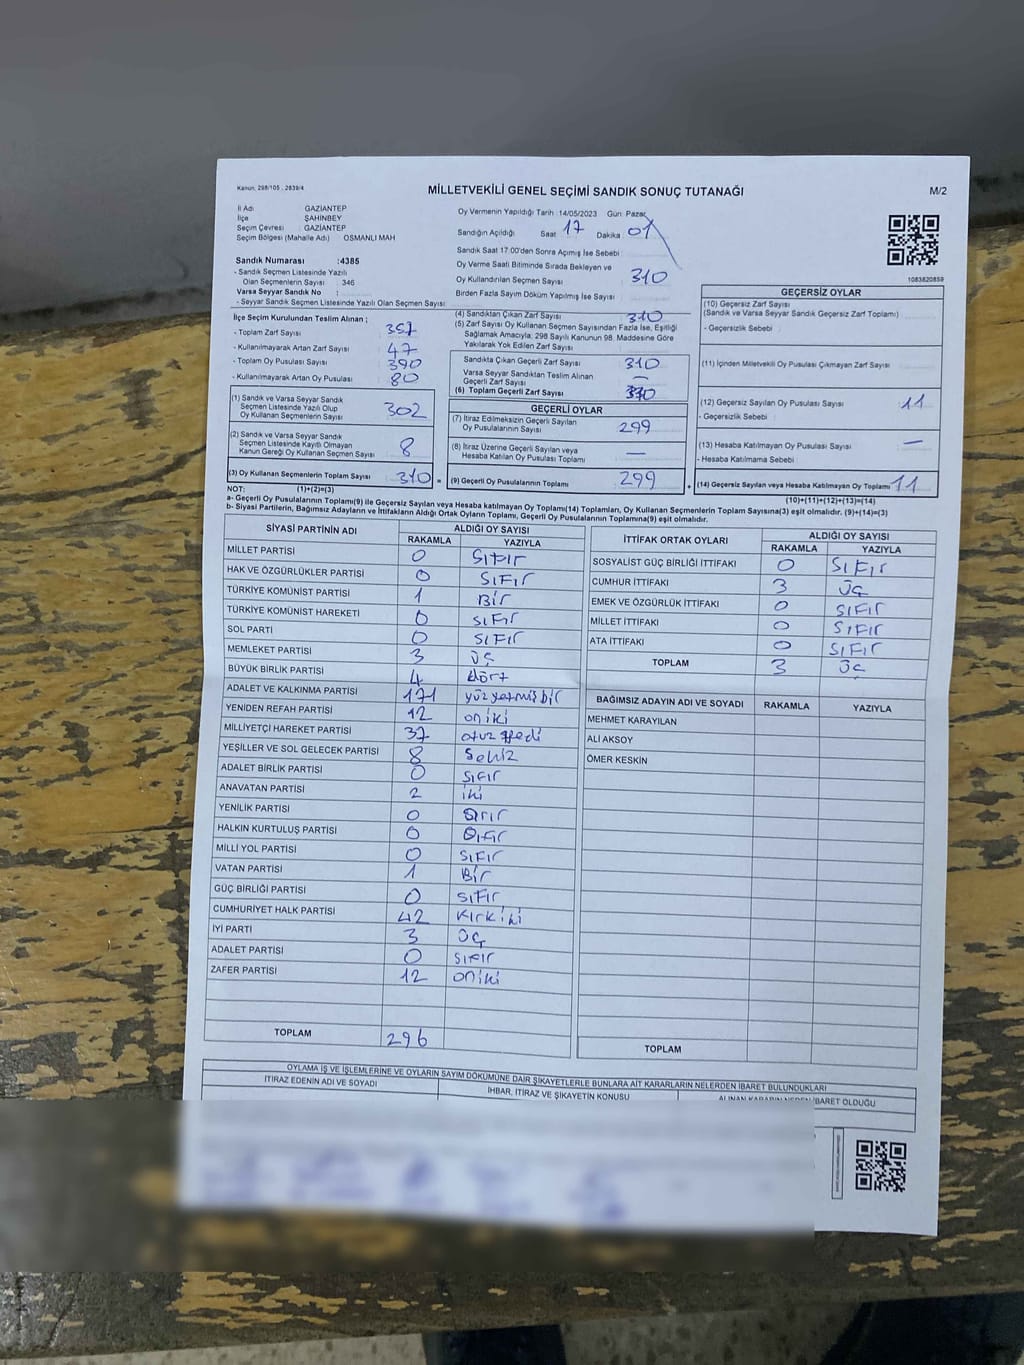 Kanun, 298/105 , 2839/4
MİLLETVEKİLİ GENEL SEÇİMİ SANDIK SONUÇ TUTANAĞI
M/2
İl Adı GAZİANTEP
İlçe ŞAHİNBEY
Seçim Çevresi GAZİANTEP
Seçim Bölgesi (Mahalle Adı) OSMANLI MAH
Sandık Numarası :4385
- Sandık Seçmen Listesinde Yazılı
Olan Seçmenlerin Sayısı : 346
Varsa Seyyar Sandık No :
- Seyyar Sandık Seçmen Listesinde Yazılı Olan Seçmen Sayısı:
Oy Vermenin Yapıldığı Tarih : 14/05/2023 Gün: Pazar
Sandığın Açıldığı Saat 17 Dakika : 01
Sandık Saat 17:00'den Sonra Açımış İse Sebebi :
Oy Verme Saati Bitiminde Sırada Bekleyen ve
Oy Kullandırılan Seçmen Sayısı 310
Birden Fazla Sayım Döküm Yapılmış İse Sayısı :
1083820859
İlçe Seçim Kurulundan Teslim Alınan ;
- Toplam Zarf Sayısı 357
- Kullanılmayarak Artan Zarf Sayısı 47
- Toplam Oy Pusulası Sayısı 390
- Kullanılmayarak Artan Oy Pusulası 80
(1) Sandık ve Varsa Seyyar Sandık
Seçmen Listesinde Yazılı Olup
Oy Kullanan Seçmenlerin Sayısı 302
(2) Sandık ve Varsa Seyyar Sandık
Seçmen Listesinde Kayıtlı Olmayan
Kanun Gereği Oy Kullanan Seçmen Sayısı 8
(3) Oy Kullanan Seçmenlerin Toplam Sayısı 310 =
(4) Sandıktan Çıkan Zarf Sayısı 310
(5) Zarf Sayısı Oy Kullanan Seçmen Sayısından Fazla İse, Eşitliği
Sağlamak Amacıyla; 298 Sayılı Kanunun 98. Maddesine Göre
Yakılarak Yok Edilen Zarf Sayısı
Sandıkta Çıkan Geçerli Zarf Sayısı 310
Varsa Seyyar Sandıktan Teslim Alınan
Geçerli Zarf Sayısı —
(6) Toplam Geçerli Zarf Sayısı 310
GEÇERLİ OYLAR
(7) İtiraz Edilmeksizin Geçerli Sayılan
Oy Pusulalarının Sayısı 299
(8) İtiraz Üzerine Geçerli Sayılan veya
Hesaba Katılan Oy Pusulası Toplamı —
(9) Geçerli Oy Pusulalarının Toplamı 299 +
GEÇERSİZ OYLAR
(10) Geçersiz Zarf Sayısı
(Sandık ve Varsa Seyyar Sandık Geçersiz Zarf Toplamı)
- Geçersizlik Sebebi :
(11) İçinden Milletvekili Oy Pusulası Çıkmayan Zarf Sayısı
(12) Geçersiz Sayılan Oy Pusulası Sayısı 11
- Geçersizlik Sebebi :
(13) Hesaba Katılmayan Oy Pusulası Sayısı —
- Hesaba Katılmama Sebebi
(14) Geçersiz Sayılan veya Hesaba Katılmayan Oy Toplamı 11
NOT: (1)+(2)=(3)
(10)+(11)+(12)+(13)=(14)
a- Geçerli Oy Pusulalarının Toplamı(9) ile Geçersiz Sayılan veya Hesaba katılmayan Oy Toplamı(14) Toplamları, Oy Kullanan Seçmenlerin Toplam Sayısına(3) eşit olmalıdır. (9)+(14)=(3)
b- Siyasi Partilerin, Bağımsız Adayların ve İttifakların Aldığı Ortak Oyların Toplamı, Geçerli Oy Pusulalarının Toplamına(9) eşit olmalıdır.
SİYASİ PARTİNİN ADI ALDIĞI OY SAYISI
RAKAMLA YAZIYLA
MİLLET PARTİSİ 0 Sıfır
HAK VE ÖZGÜRLÜKLER PARTİSİ 0 SıFır
TÜRKİYE KOMÜNİST PARTİSİ 1 Bir
TÜRKİYE KOMÜNİST HAREKETİ 0 SıFır
SOL PARTİ 0 SıFır
MEMLEKET PARTİSİ 3 üç
BÜYÜK BİRLİK PARTİSİ 4 dört
ADALET VE KALKINMA PARTİSİ 171 yüz yetmiş bir
YENİDEN REFAH PARTİSİ 12 oniki
MİLLİYETÇİ HAREKET PARTİSİ 37 otuz yedi
YEŞİLLER VE SOL GELECEK PARTİSİ 8 Sekiz
ADALET BİRLİK PARTİSİ 0 SıFır
ANAVATAN PARTİSİ 2 iki
YENİLİK PARTİSİ 0 SıFır
HALKIN KURTULUŞ PARTİSİ 0 SıFır
MİLLİ YOL PARTİSİ 0 SıFır
VATAN PARTİSİ 1 Bir
GÜÇ BİRLİĞİ PARTİSİ 0 SıFır
CUMHURİYET HALK PARTİSİ 42 Kırkiki
İYİ PARTİ 3 üç
ADALET PARTİSİ 0 SıFır
ZAFER PARTİSİ 12 oniki
TOPLAM 296
İTTİFAK ORTAK OYLARI ALDIĞI OY SAYISI
RAKAMLA YAZIYLA
SOSYALİST GÜÇ BİRLİĞİ İTTİFAKI 0 SıFır
CUMHUR İTTİFAKI 3 üç
EMEK VE ÖZGÜRLÜK İTTİFAKI 0 SıFır
MİLLET İTTİFAKI 0 SıFır
ATA İTTİFAKI 0 SıFır
TOPLAM 3 üç
BAĞIMSIZ ADAYIN ADI VE SOYADI RAKAMLA YAZIYLA
MEHMET KARAYILAN
ALİ AKSOY
ÖMER KESKİN
TOPLAM
OYLAMA İŞ VE İŞLEMLERİNE VE OYLARIN SAYIM DÖKÜMÜNE DAİR ŞİKAYETLERLE BUNLARA AİT KARARLARIN NELERDEN İBARET BULUNDUKLARI
İTİRAZ EDENİN ADI VE SOYADI İHBAR, İTİRAZ VE ŞİKAYETİN KONUSU ALINAN KARARIN NEDEN İBARET OLDUĞU